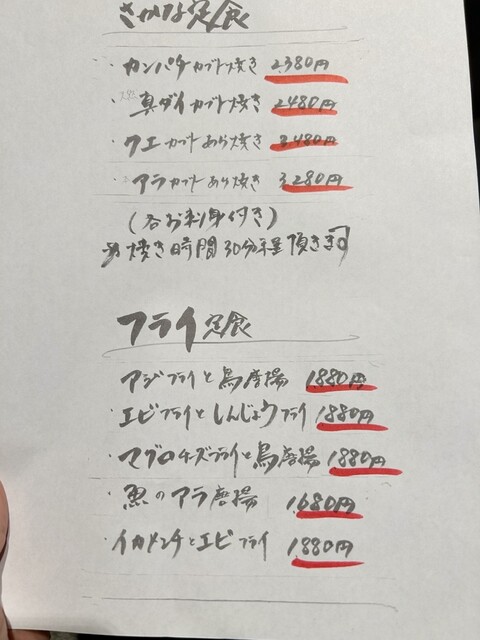 さかな定食
・カンパチカブト焼き 2,380円
・真ダイカブト焼き 2,480円
・クエカブトあら焼き 3,480円
・アラカブトあら焼き 3,280円
(各お刺身付き)
※焼き時間30分程頂きます
フライ定食
アジフライと鳥唐揚 1,880円
・エビフライとしんじょうフライ 1,880円
・マグロチーズフライと鳥唐揚 1,880円
・魚のアラ唐揚 1,680円
・イカメンチとエビフライ 1,880円